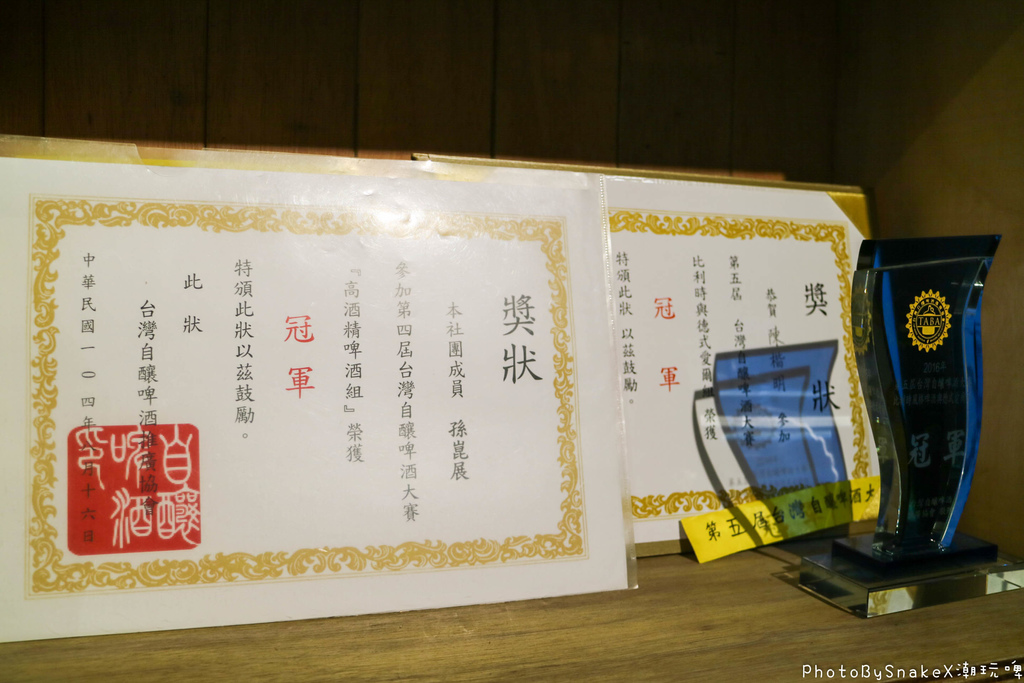 獎狀
本社團成員 孫崑展
參加第四屆台灣自釀啤酒大賽
『高酒精啤酒組』榮獲
冠軍
特頒此狀以茲鼓勵。
此狀
台灣自釀啤酒推廣協會
中華民國一〇四年 月十六日
自釀
啤酒
獎狀
恭賀 陳楷明 參加
第五屆 台灣自釀啤酒大賽
比利時與德式愛爾組 榮獲
冠軍
特頒此狀 以茲鼓勵。
第五屆台灣自釀啤酒大
TABA
2016年
冠軍
PhotoBySnakeX潮玩啤